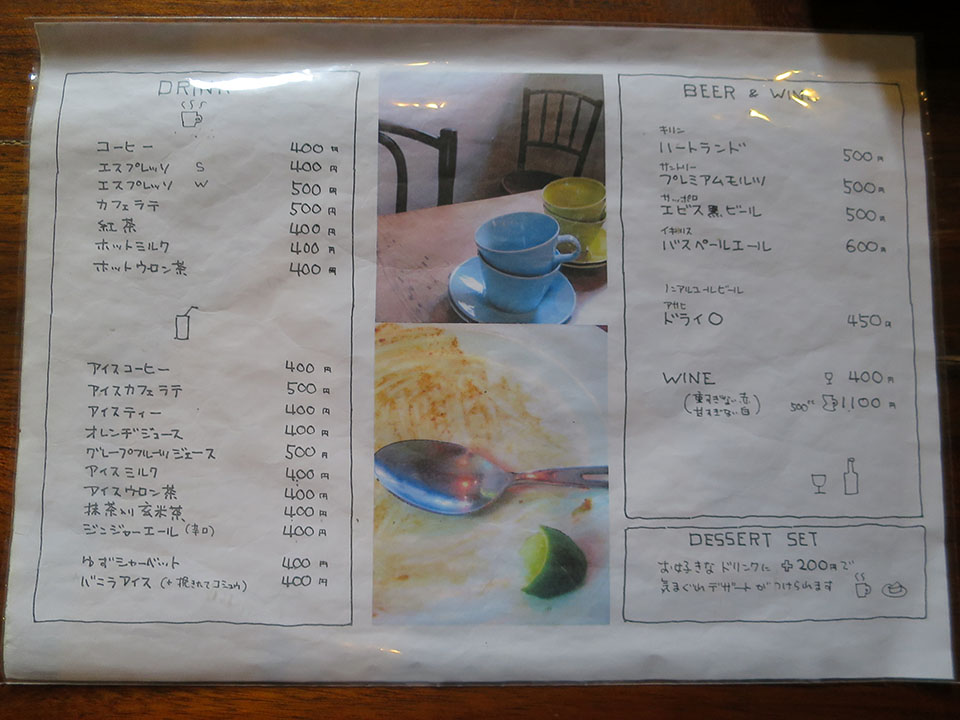 DRINK
コーヒー 400円
エスプレッソ S 400円
エスプレッソ W 500円
カフェラテ 500円
紅茶 400円
ホットミルク 400円
ホットウロン茶 400円
アイスコーヒー 400円
アイスカフェラテ 500円
アイスティー 400円
オレンヂジュース 400円
グレープフルーツジュース 500円
アイスミルク 400円
アイスウロン茶 400円
抹茶入り玄米茶 400円
ジンジャーエール(辛口) 400円
ゆずシャーベット 400円
バニラアイス(+挽きたてコショウ) 400円
BEER & WINE
キリン
ハートランド 500円
サントリー
プレミアムモルツ 500円
サッポロ
エビス黒ビール 500円
イギリス
バスペールエール 600円
ノンアルコールビール
アサヒ
ドライ〇 450円
WINE 400円
(重すぎない赤 甘すぎない白) 500cc 1,100円
DESSERT SET
お好きなドリンクに +200円で
気まぐれデザートがつけられます